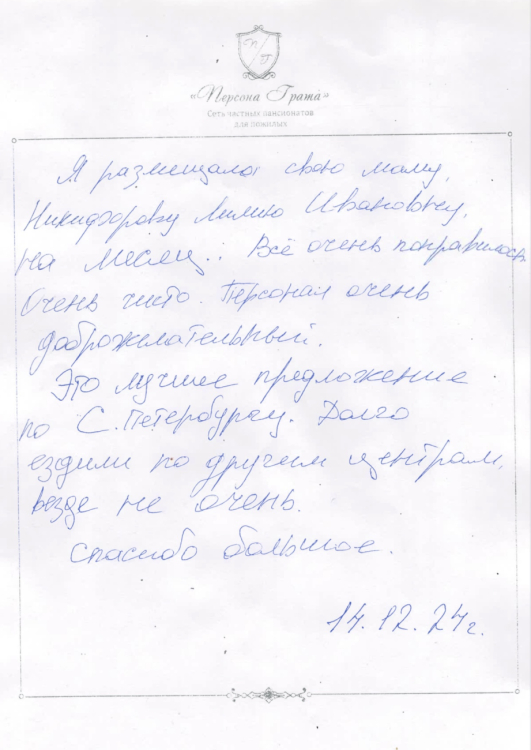 П/Г
«Персона Грата»
Сеть частных пансионатов
для пожилых
Я размещала свою маму,
Никифорову Лилию Ивановну,
на месяц.. Всё очень понравилось.
Очень чисто. Персонал очень
доброжелательный.
Это лучшее предложение
по С.Петербургу. Долго
ездили по другим центрам,
везде не очень.
Спасибо большое.
14.12.24г.